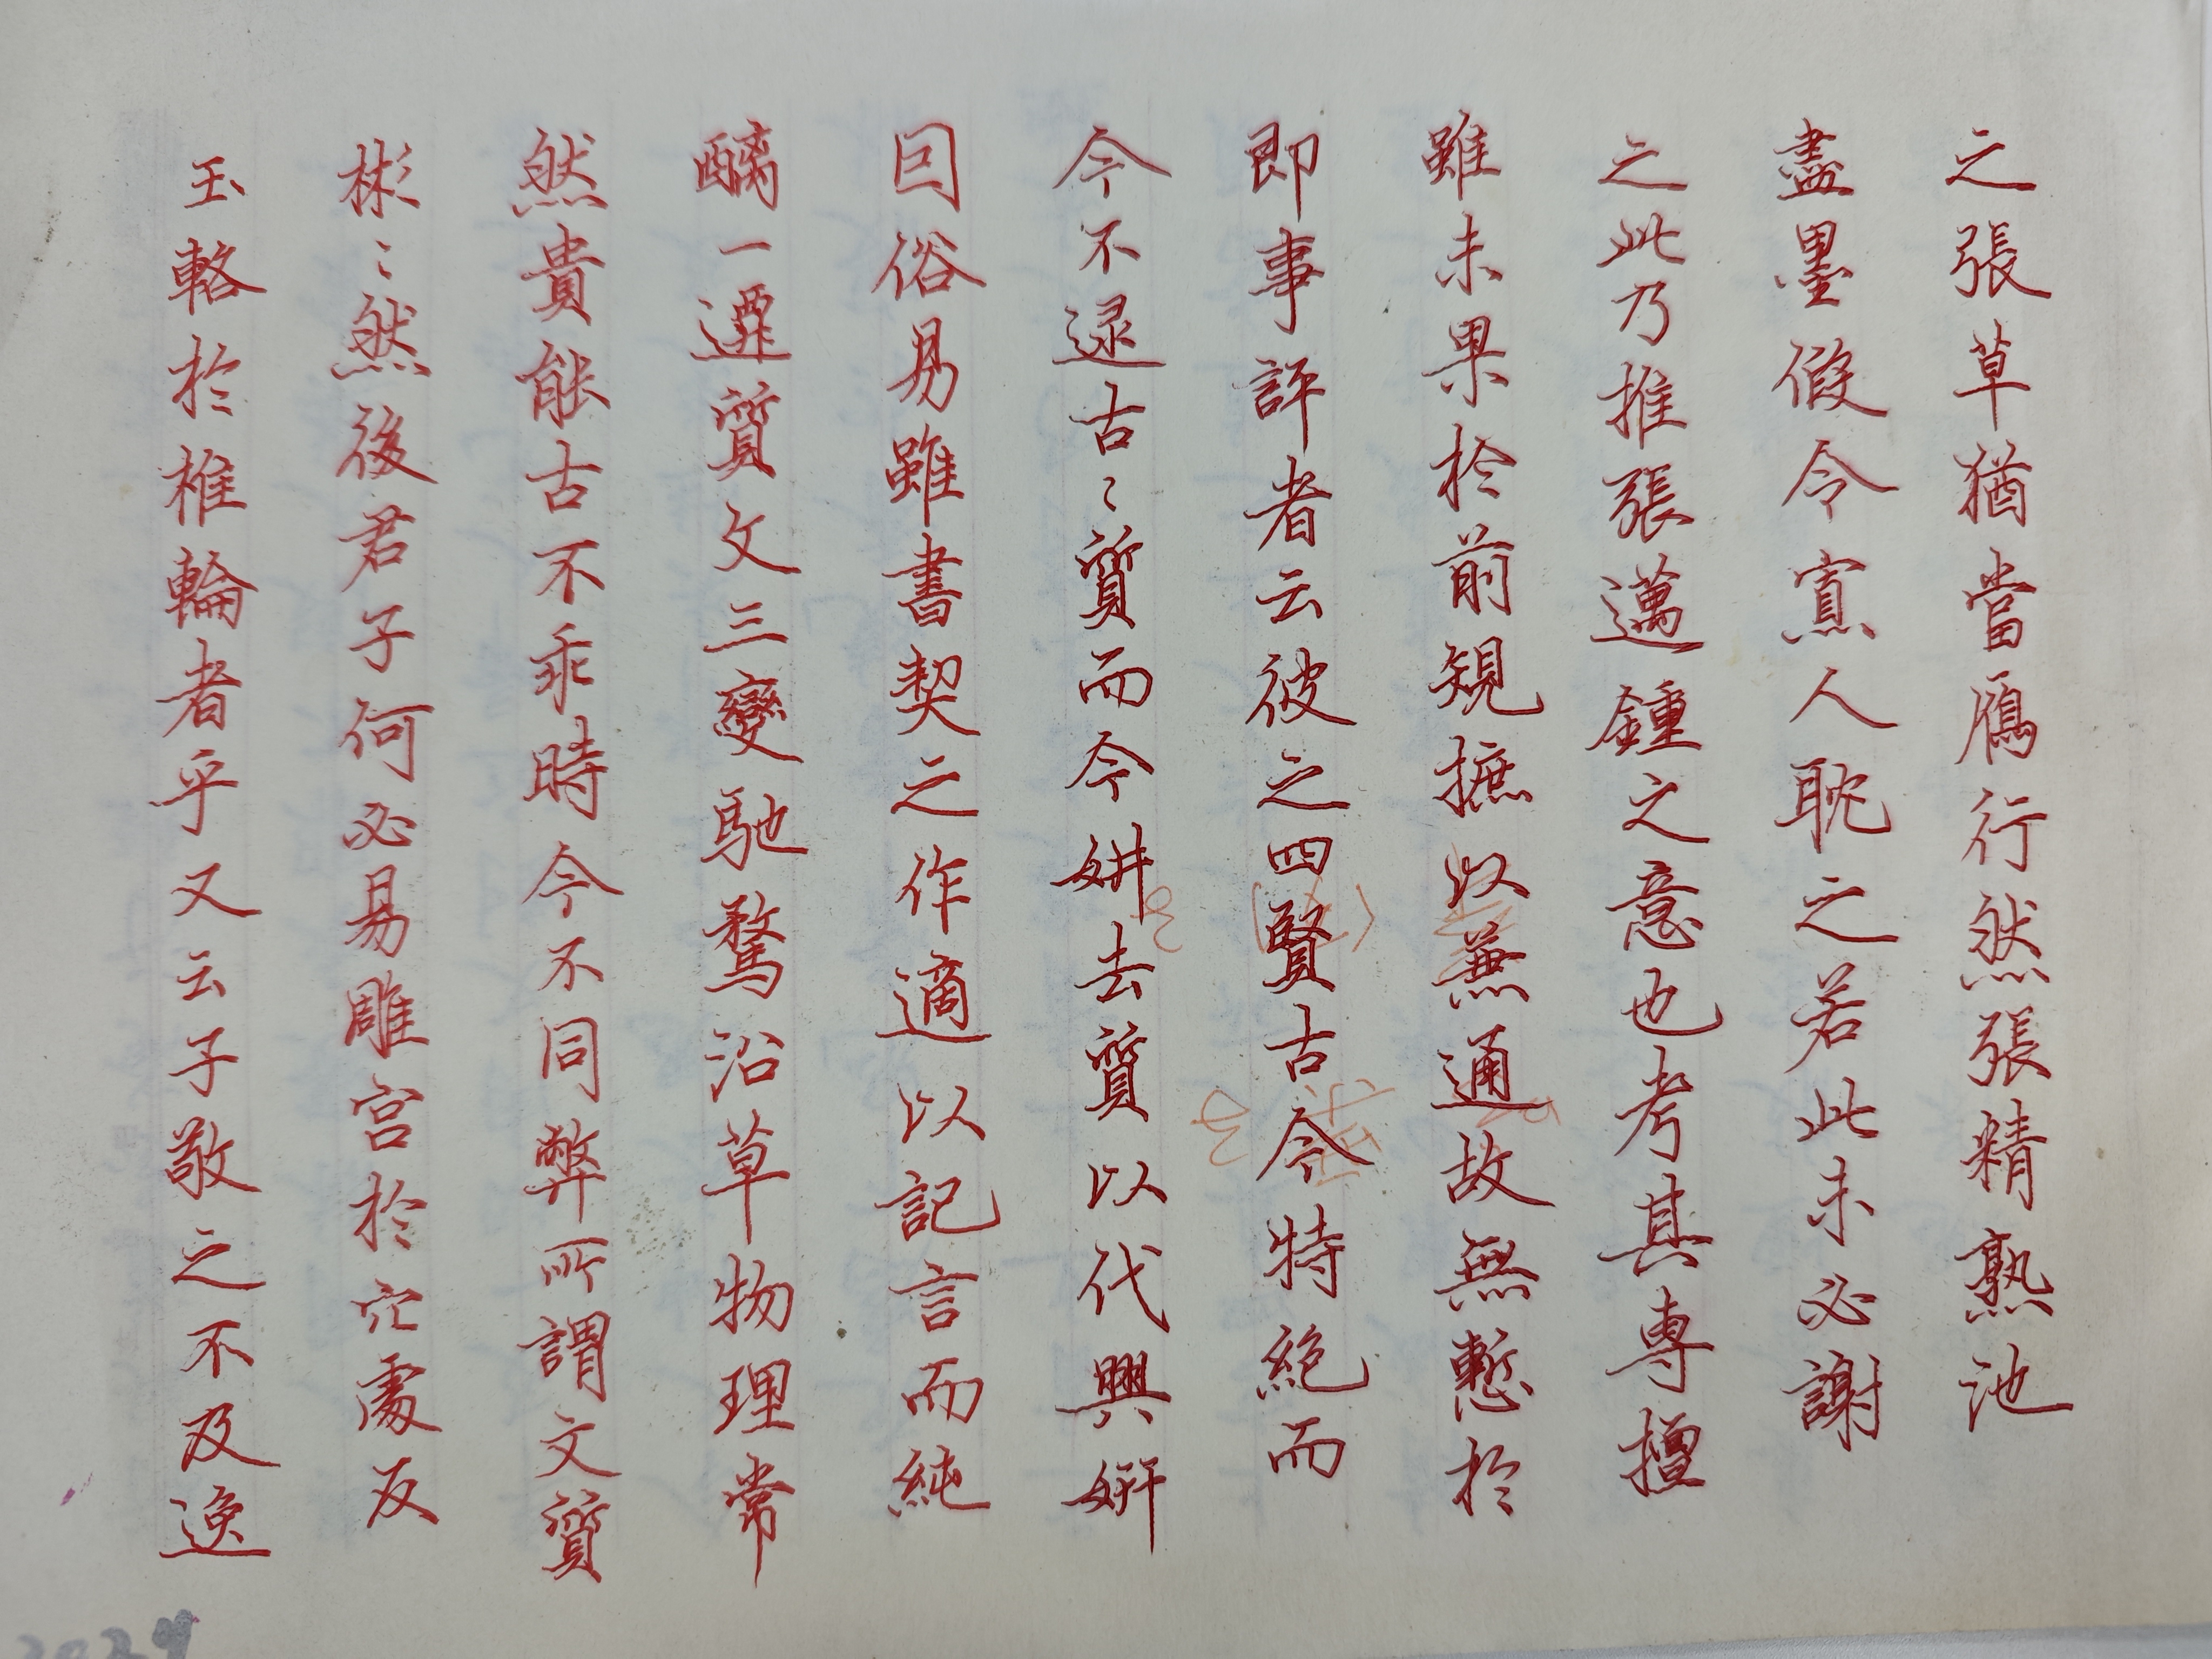 之張草猶當鴈行然張精熟池
盡墨假令寡人耽之若此未必謝
之此乃推張邁鍾之意也考其專擅
雖未果於前規摭以兼通故無慙於
即事評者云彼之四賢古今特絕而
今不逮古〻質而今妍去質以代興妍
因俗易雖書契之作適以記言而純
醨一遷質文三變馳騖沿草物理常
然貴能古不乖時今不同弊所謂文質
彬〻然後君子何必易雕宮於穴處反
玉輅於椎輪者乎又云子敬之不及逸